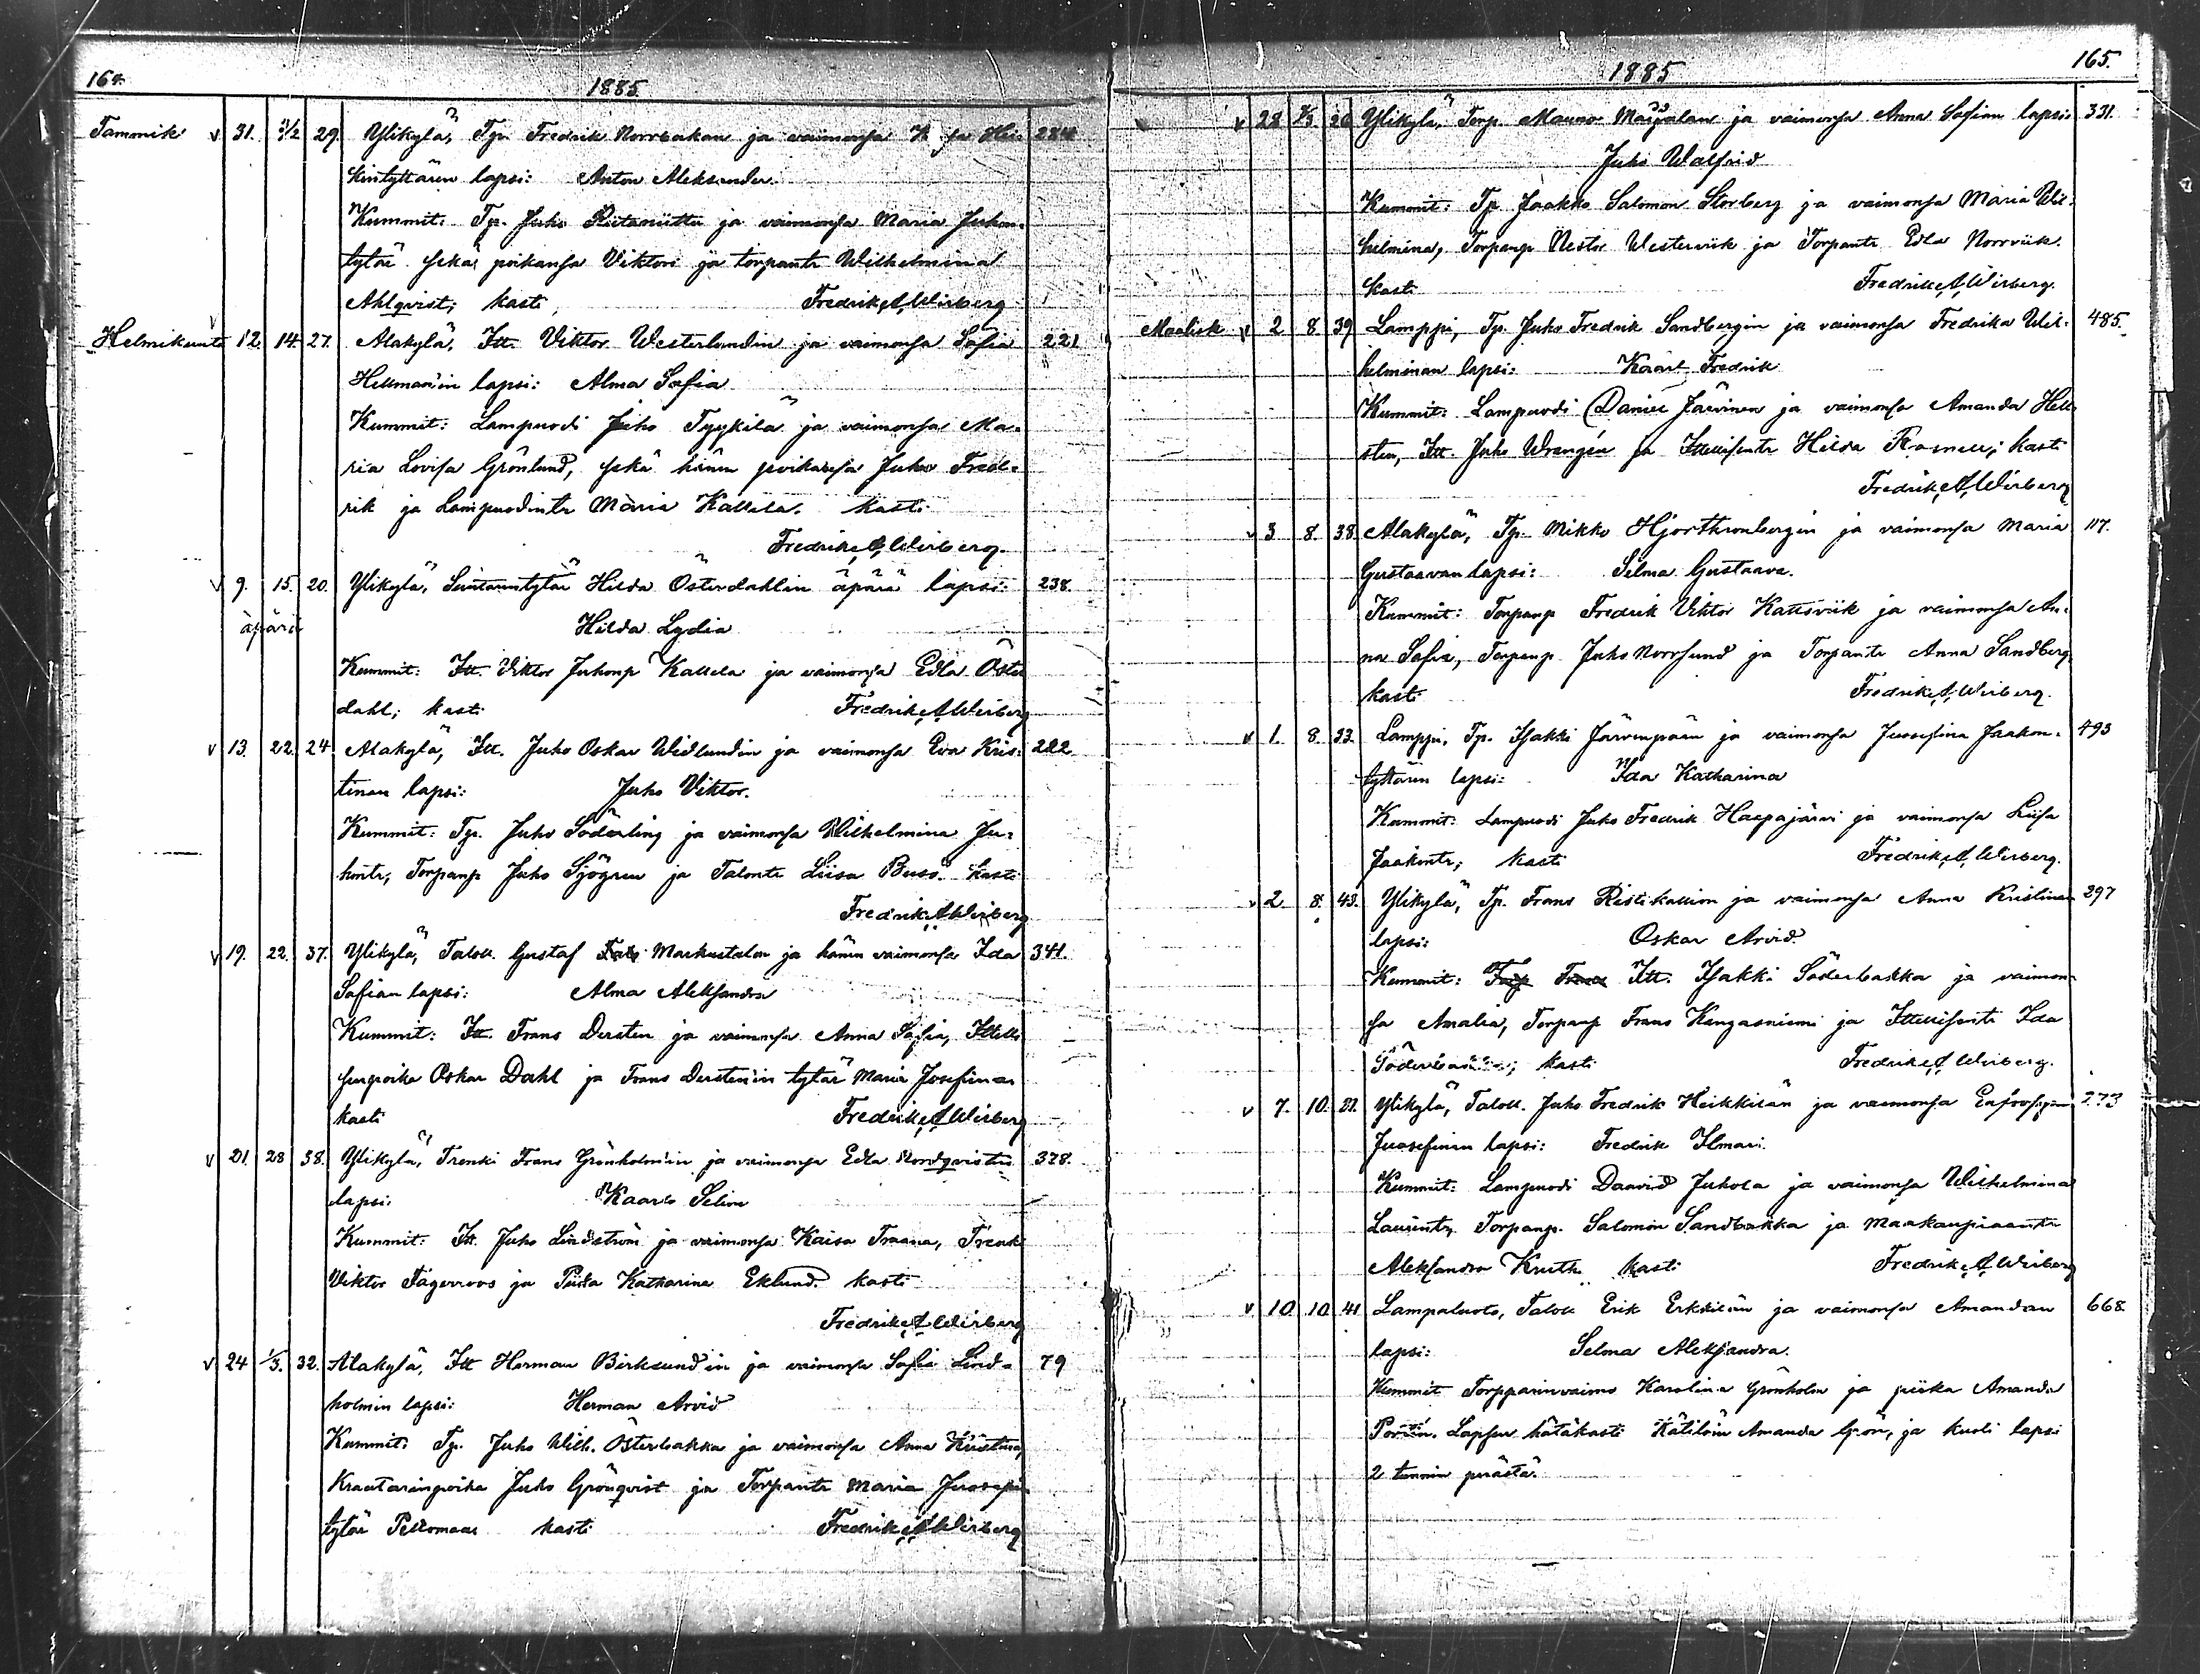 164.
1885.
Tammik v 31. 1/2 29. Ylikylä, Tp. Fredrik Norrbakan ja vaimonsa Hei- 284
kintyttären lapsi: Anton Aleksander.
Kummit: Tp. Juho Riitaniittu ja vaimonsa Maria Juhon-
tytär sekä poikansa Viktori ja torpantr Wilhelmina
Ahlqvist; kasti Fredrik A Wirberg
Helmikuulta 12. 14. 27. Alakylä, Itt. Viktor Westerlundin ja vaimonsa Sofia 221
Hellman'in lapsi: Alma Sofia
Kummit: Lampuodi Juho Tyykilä ja vaimonsa Ma-
ria Lovisa Grönlund, sekä hänen poikansa Juho Fred-
rik ja Lampuodintr Maria Kallila. kasti
Fredrik A Wirberg.
v 9. 15. 20. Ylikylä, Hilda Österdahlin äpärä lapsi: 238.
äpärä Hilda Lydia
Kummit: Itt. Viktor Juhonp Kallela ja vaimonsa Edla Öster
dahl; kasti Fredrik A Wirberg
v 13. 22. 24. Alakylä, Itt. Juho Oskar Widlundin ja vaimonsa Eva Kris- 222
tinan lapsi: Juho Viktor.
Kummit: Tp. Juho Söderling ja vaimonsa Wilhelmina Ju-
hontr, Torpanp Juho Sjögren ja Talontr Liisa Busö. kasti
Fredrik A Wirberg
v 19. 22. 37. Ylikylä, Taloll. Gustaf Markustalon ja hänen vaimonsa Ida 341.
Sofian lapsi: Alma Aleksandra
Kummit: Itt. Frans Dersten ja vaimonsa Anna Sofia, Ittelli
senpoika Oskar Dahl ja Frans Dersten'in tytär Maria Josefina
kasti Fredrik A Wirberg
v 21. 23 38. Ylikylä, Trenki Frans Grönholm'in ja vaimonsa Edla Nordqvistin 328.
lapsi: Kaarlo Selim
Kummit: Itt. Juho Lindström ja vaimonsa Kaisa Fransa, Trenk
Viktor Fägerroos ja Piika Katharina Eklund. kasti
Fredrik A Wirberg
v 24 1/3. 32. Alakylä, Itt Herman Birklund'in ja vaimonsa Sofia Lind- 79
holmin lapsi: Herman Arvid
Kummit: Tp. Juho Wilh. Österbakka ja vaimonsa Anna Kristina,
Kraatarinpoika Juho Grönqvist ja Torpantr Maria Juosepin
tytär Peltomaa kasti Fredrik A Wirberg
165.
1885
v 28 1/3. 26 Ylikylä, Torp. Mauno ja vaimonsa Anna Sofian lapsi: 331.
Juho Walfrid
Kummit: Tp. Jaakko Salomon Storberg ja vaimonsa Maria Wil-
helmina, Torpanp Nestor Westervik ja Torpantr Edla Norrviik.
kasti Fredrik A Wirberg.
Maalisk v 2 8 39 Lamppi, Tp. Juho Fredrik Sandbergin ja vaimonsa Fredrika Wil- 485.
helminan lapsi: Kaarl Fredrik
Kummit: Lampuodi Daniel Järvinen ja vaimonsa Amanda Hell
sten, Itt. Juho Wrangén ja Ittellisentr Hilda; kasti
Fredrik A Wirberg
v 3 8. 38 Alakylä, Tp. Mikko Hjorthronbergin ja vaimonsa Maria 117.
Gustaavan lapsi: Selma Gustaava.
Kummit: Torpanp Fredrik Viktor Kattsviik ja vaimonsa An-
na Sofia, Torpanp Juho Norrsund ja Torpantr Anna Sandberg
kasti Fredrik A Wirberg.
v 1. 8. 33. Lamppi, Tp. Isakki Järvenpään ja vaimonsa Juosefina Jaakon- 493
tyttären lapsi: Ida Katharina
Kummit: Lampuodi Juho Fredrik Haapajärvi ja vaimonsa Liisa
Jaakontr; kasti Fredrik A Wirberg.
v 2. 8. 43. Ylikylä, Tp. Frans Ristikallion ja vaimonsa Anna Kristinan 297
lapsi: Oskar Arvid.
Kummit: Itt. Isakki Söderbakka ja vaimon-
sa Amalia, Torpanp Frans Kangasniemi ja Ittellisentr Ida
Söderbakka; kasti Fredrik A Wirberg.
v 7. 10. 27. Ylikylä, Taloll. Juho Fredrik Heikkilän ja vaimonsa 273
Juosefinan lapsi: Fredrik Ilmari.
Kummit: Lampuodi Daavid Juhola ja vaimonsa Wilhelmina
Laurintr, Torpanp. Salomon Sandbakka ja Maakaupiaantr
Aleksandra Knuth kasti Fredrik A Wirberg
v 10. 10. 41. Lampaluoto, Taloll Erik Erkkilän ja vaimonsa Amandan 668.
lapsi: Selma Aleksandra.
Kummit Torpparinvaimo Karolina Grönholm ja piika Amanda
Porin. Lapsen hätäkasti Kätilöin Amanda Grön, ja kuoli lapsi
2 tunnin perästä.